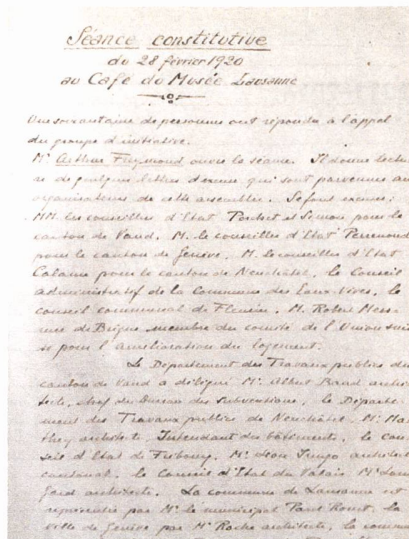 Séance constitutive
du 28 février 1920
au Café du Musée Lausanne
Une soixantaine de personnes ont répondu à l'appel
du groupe d'initiative.
Mr Arthur Freymond ouvre la séance. Il donne lectu-
re de quelques lettres d'excuses qui sont parvenues aux
organisateurs de cette assemblée. Se font excuser:
MM. les conseillers d'Etat et Simon pour le
canton de Vaud, M. le conseiller d'Etat Perrenoud
pour le canton de Genève, M. le conseiller d'Etat
Calame pour le canton de Neuchâtel, le Conseil
administratif de la Commune des Eaux-Vives, le
conseil communal de Fleurier, M. Robert
de Brigue membre du comité de l'Union suis-
se pour l'amélioration du logement.
Le Département des Travaux publics du
canton de Vaud a délégué Mr Albert archi-
tecte, chef du Bureau des subventions, le Départe-
ment des Travaux publics de Neuchâtel, M. Mat-
they architecte, Intendant des bâtiments, le con-
seil d'Etat de Fribourg, Mr Léon architecte
cantonal, le Conseil d'Etat du Valais
architecte. La commune de Lausanne est
représentée par Mr le municipal Paul la
ville de Genève par Mr Roche architecte, la commune